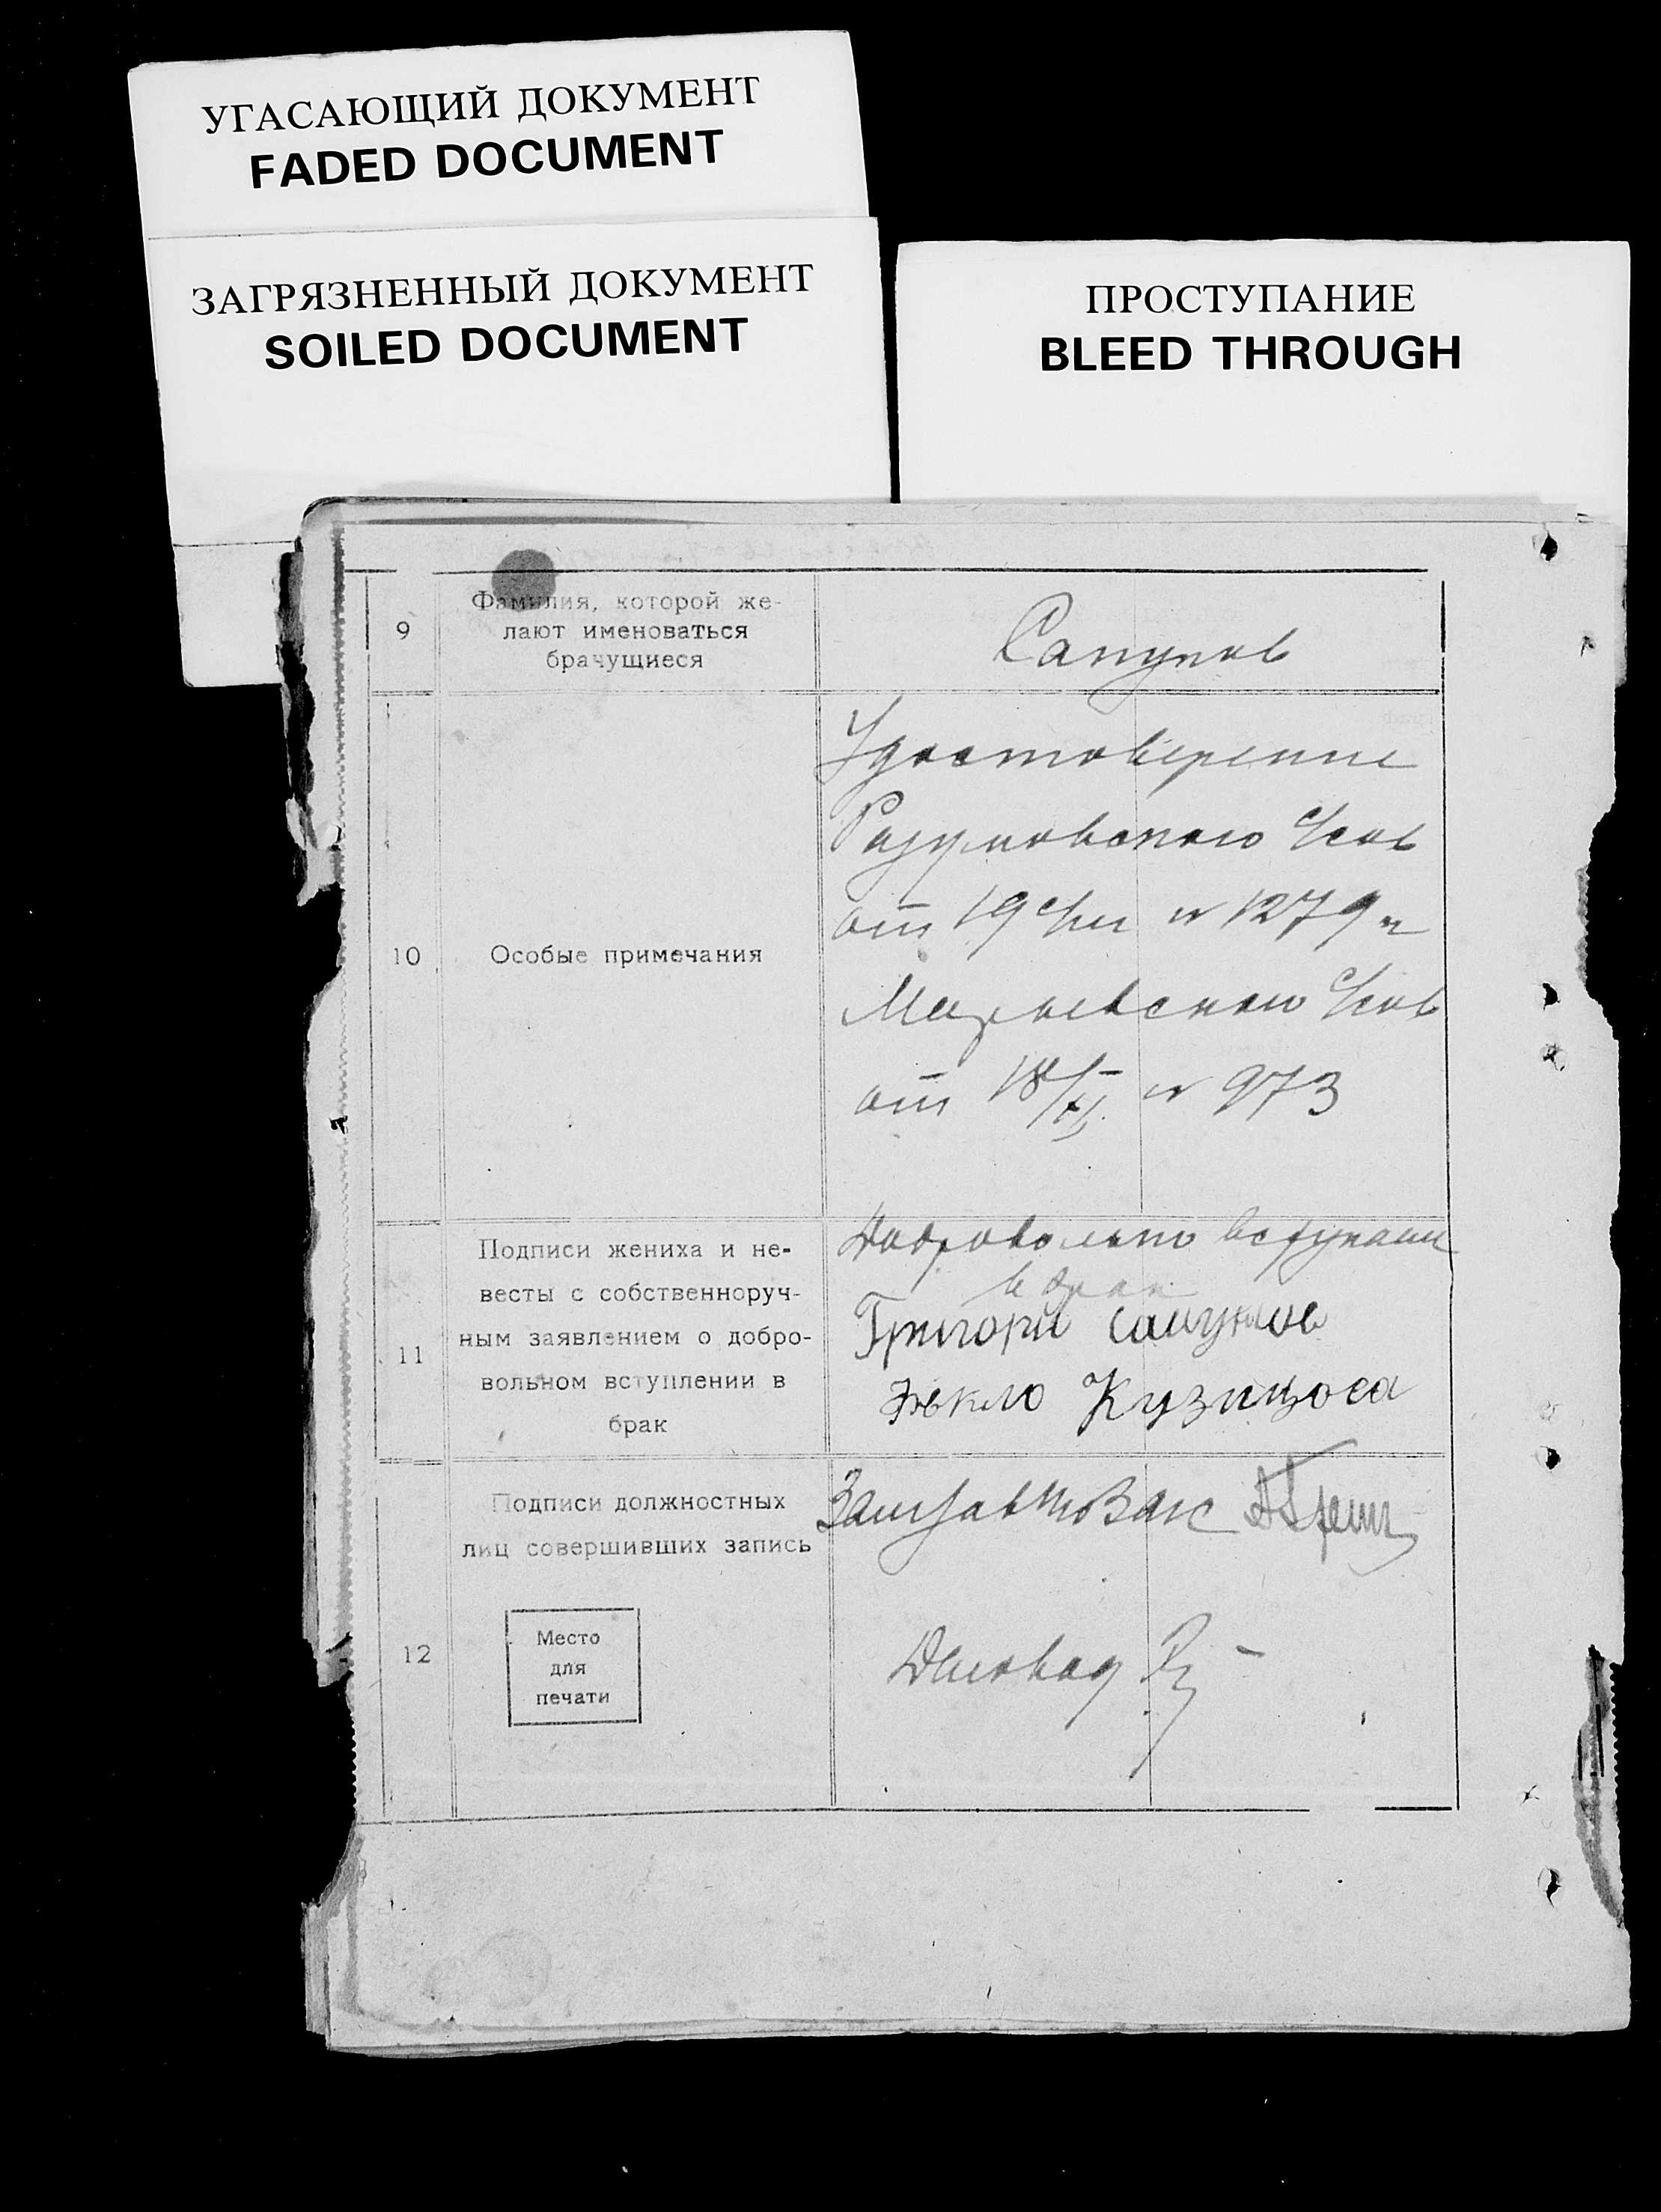 УГАСАЮЩИЙ ДОКУМЕНТ
FADED DOCUMENT
ЗАГРЯЗНЕННЫЙ ДОКУМЕНТ
SOILED DOCUMENT
ПРОСТУПАНИЕ
BLEED THROUGH
9
Фамилия, которой же-
лают именоваться
брачущиеся
Сапунов
10
Особые примечания
Удостоверение
Разумовского
от 19 № 1279 и
от 18/XI № 973
11
Подписи жениха и не-
весты с собственноруч-
ным заявлением о добро-
вольном вступлении в
брак
Добровольно вступаем
в брак
Григори Сапунов
Кузнцова
12
Подписи должностных
лиц совершивших запись
Место
для
печати
Деловод